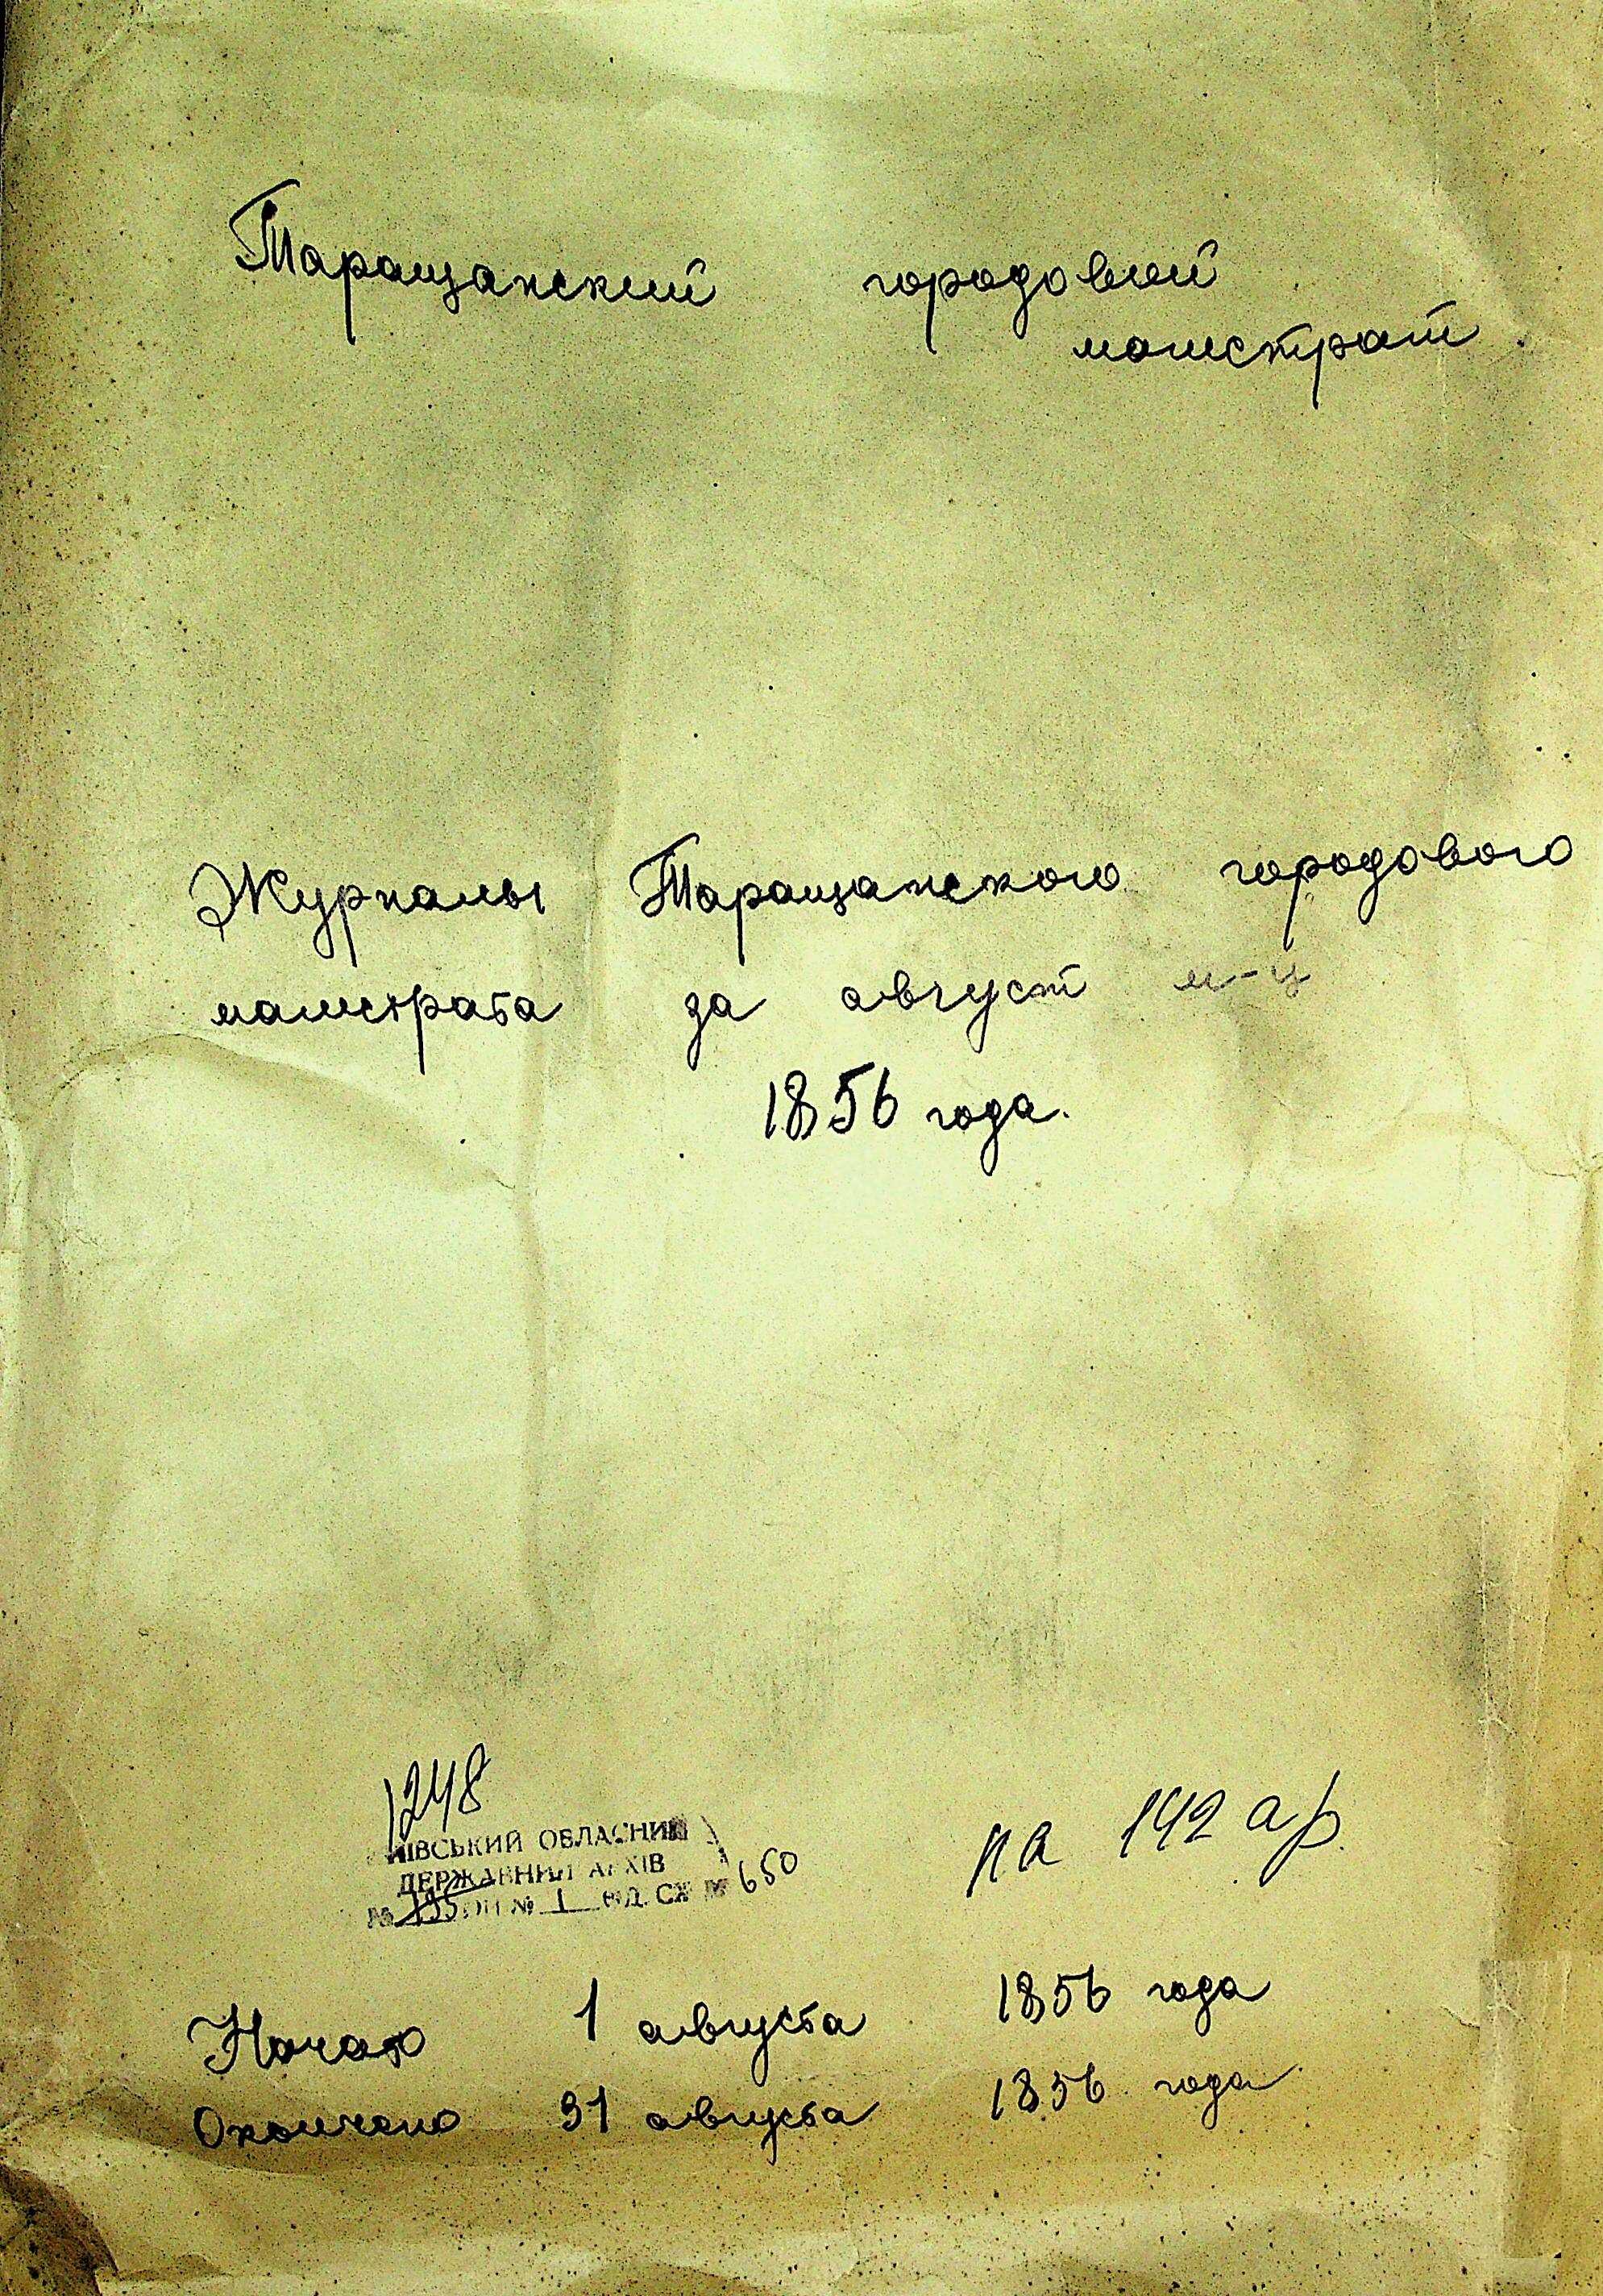 Таращанский городовой
магистрат.
Журналы Таращанского городового
магистрата за август м-ц
1856 года.
1248
КИЇВСЬКИЙ ОБЛАСНИЙ
ДЕРЖАВНИЙ АРХІВ
№ ОП № 1 ОД. СХ № 650
на 142 ар.
Начато 1 августа 1856 года
Окончено 31 августа 1856 года